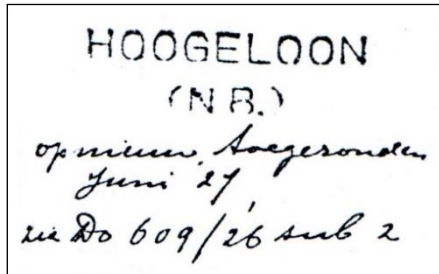 HOOGELOON
(N B.)
opnieuw toegezonden
Juni 27
zie Do 609/26 sub 2